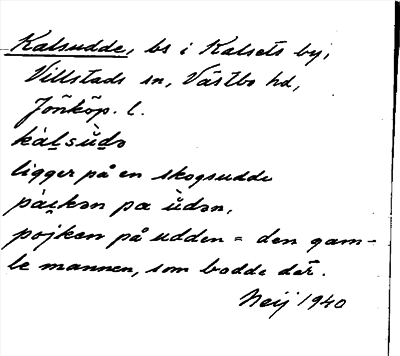 Kalsudde, bs i Kalsets by,
Villstads sn, Västbo hd,
Jönköp. l.
kàl̠sùdə
ligger på en skogsudde
pàɛkən pa ùdən,
pojken på udden = den gam-
le mannen, som bodde där.
Neij 1940